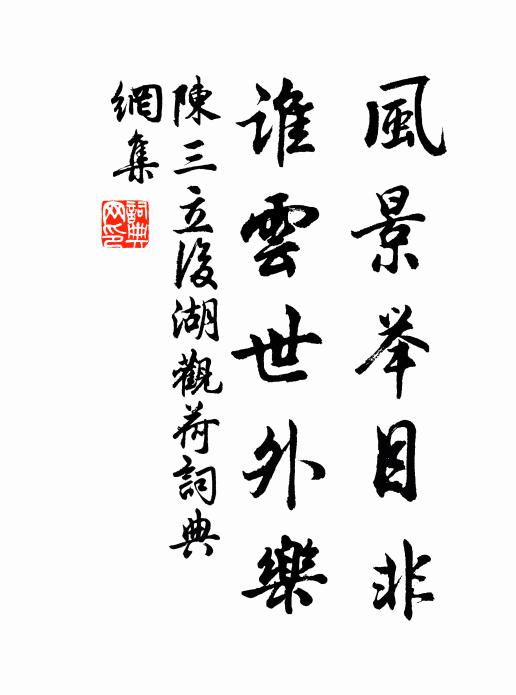 風景举目非
誰雲世外樂
陳三立後湖觀荷詞典
網集
詞典
网印